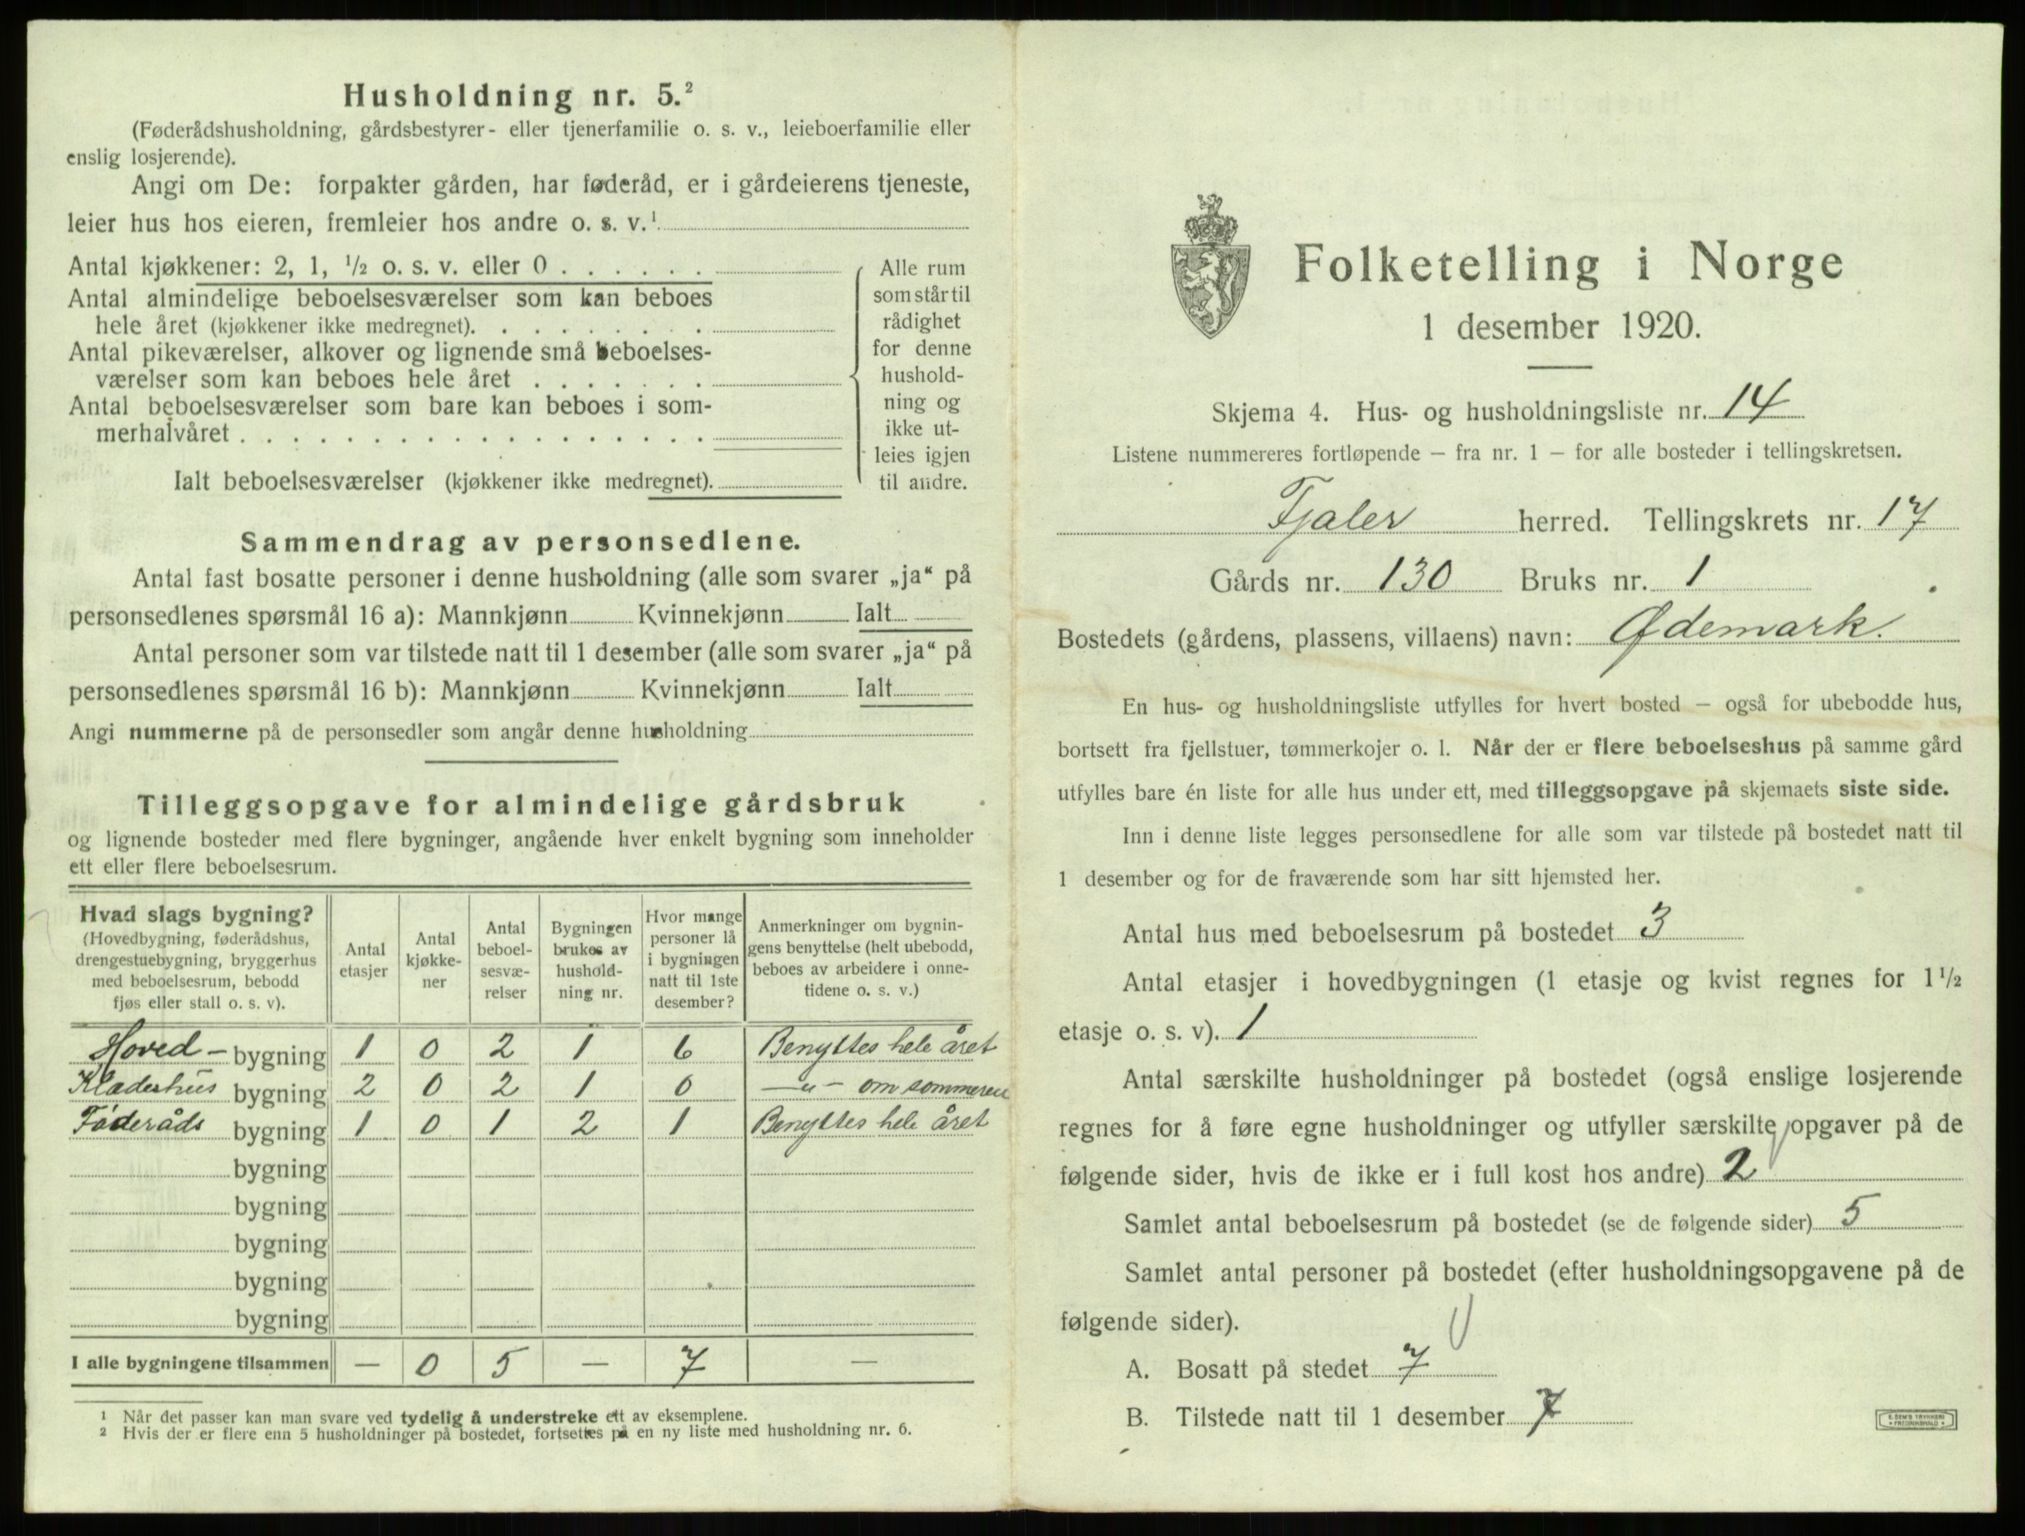 Husholdning nr. 5.²
(Føderådshusholdning, gårdsbestyrer- eller tjenerfamilie o. s. v., leieboerfamilie eller
enslig losjerende).
Angi om De: forpakter gården, har føderåd, er i gårdeierens tjeneste,
leier hus hos eieren, fremleier hos andre o. s. v.¹
Antal kjøkkener: 2, 1, ½ o. s. v. eller 0 . . . . . .
Antal almindelige beboelsesværelser som kan beboes
hele året (kjøkkener ikke medregnet). . . . . . . . .
Antal pikeværelser, alkover og lignende små beboelses-
værelser som kan beboes hele året . . . . . . .
Antal beboelsesværelser som bare kan beboes i som-
merhalvåret . . . . . . . . . . . . . . . . . .
Ialt beboelsesværelser (kjøkkener ikke medregnet).
Alle rum
som står til
rådighet
for denne
hushold-
ning og
ikke ut-
leies igjen
til andre.
Sammendrag av personsedlene.
Antal fast bosatte personer i denne husholdning (alle som svarer „ja“ på
personsedlenes spørsmål 16 a): Mannkjønn Kvinnekjønn Ialt
Antal personer som var tilstede natt til 1 desember (alle som svarer „ja“ på
personsedlenes spørsmål 16 b): Mannkjønn Kvinnekjønn Ialt
Angi nummerne på de personsedler som angår denne husholdning
Tilleggsopgave for almindelige gårdsbruk
og lignende bosteder med flere bygninger, angående hver enkelt bygning som inneholder
ett eller flere beboelsesrum.
Hvad slags bygning?
(Hovedbygning, føderådshus,
drengestuebygning, bryggerhus
med beboelsesrum, bebodd
fjøs eller stall o. s. v).
Antal
etasjer
Antal
kjøkke-
ner
Antal
beboel-
sesvæ-
relser
Bygningen
brukes av
hushold-
ning nr.
Hvor mange
personer lå
i bygningen
natt til 1ste
desember?
Anmerkninger om bygnin-
gens benyttelse (helt ubebodd,
beboes av arbeidere i onne-
tidene o. s. v.)
Hoved- bygning 1 0 2 1 6 Benyttes hele året
Klædeshus bygning 2 0 2 1 0 —"— om sommeren
Føderåds bygning 1 0 1 2 1 Benyttes hele året
bygning
bygning
bygning
bygning
bygning
I alle bygningene tilsammen — 0 5 — 7 —
¹ Når det passer kan man svare ved tydelig å understreke ett av eksemplene.
² Hvis der er flere enn 5 husholdninger på bostedet, fortsettes på en ny liste med husholdning nr. 6.
Folketelling i Norge
1 desember 1920.
Skjema 4. Hus- og husholdningsliste nr. 14
Listene nummereres fortløpende – fra nr. 1 – for alle bosteder i tellingskretsen.
Fjaler herred. Tellingskrets nr. 17
Gårds nr. 130 Bruks nr. 1
Bostedets (gårdens, plassens, villaens) navn: Ødemark.
En hus- og husholdningsliste utfylles for hvert bosted – også for ubebodde hus,
bortsett fra fjellstuer, tømmerkojer o. l. Når der er flere beboelseshus på samme gård
utfylles bare én liste for alle hus under ett, med tilleggsopgave på skjemaets siste side.
Inn i denne liste legges personsedlene for alle som var tilstede på bostedet natt til
1 desember og for de fraværende som har sitt hjemsted her.
Antal hus med beboelsesrum på bostedet 3
Antal etasjer i hovedbygningen (1 etasje og kvist regnes for 1½
etasje o. s. v). 1
Antal særskilte husholdninger på bostedet (også enslige losjerende
regnes for å føre egne husholdninger og utfyller særskilte opgaver på de
følgende sider, hvis de ikke er i full kost hos andre) 2
Samlet antal beboelsesrum på bostedet (se de følgende sider) 5
Samlet antal personer på bostedet (efter husholdningsopgavene på de
følgende sider).
A. Bosatt på stedet 7
B. Tilstede natt til 1 desember 7
E. SEM'S TRYKKERI
FREDRIKSHALD